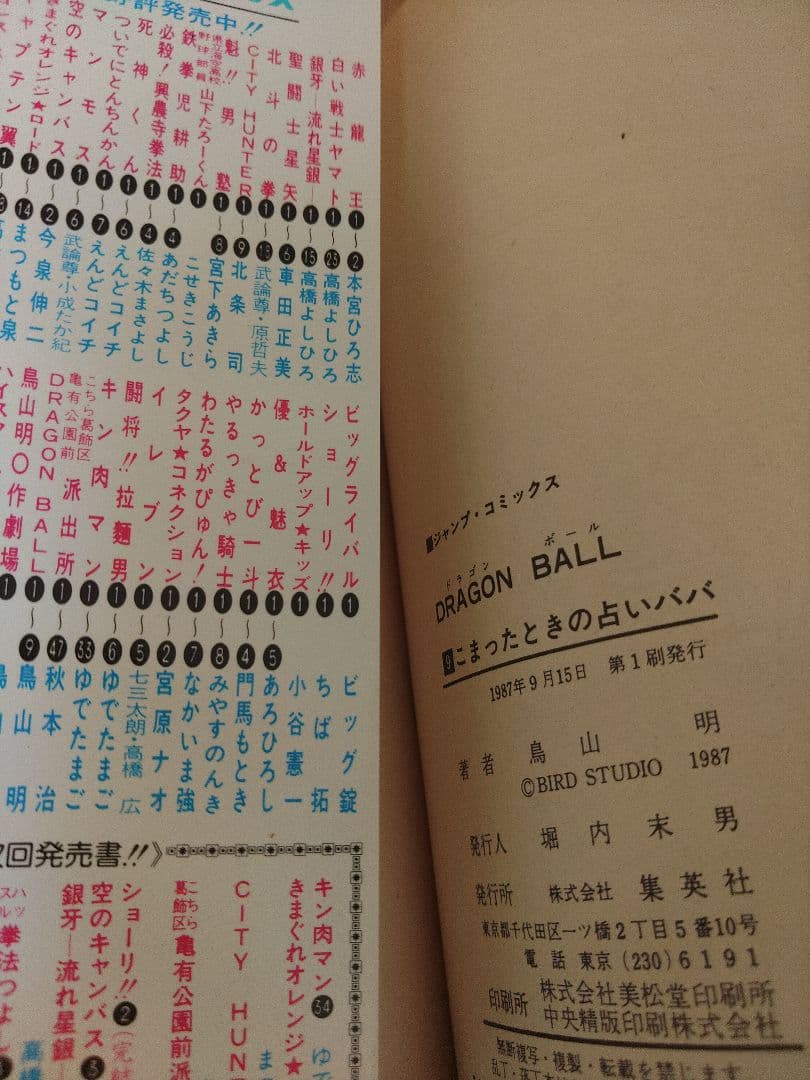 好評発売中!!
赤龍王 1〜2 本宮ひろ志
白い戦士ヤマト 1〜23 高橋よしひろ
銀牙―流れ星銀― 1〜15 高橋よしひろ
聖闘士星矢 1〜6 車田正美
北斗の拳 1〜13 武論尊・原哲夫
CITY HUNTER 1〜9 北条司
魁!!男塾 1〜8 宮下あきら
県立海空高校野球部員山下たろーくん こせきこうじ
鉄拳児耕助 1〜4 あだちつよし
必殺!興農寺拳法 1〜4 佐々木まさよし
死神くん 1〜6 えんどコイチ
ついでにとんちんかん 1〜7 えんどコイチ
マンモス 1〜6 武論尊・小成たか紀
空のキャンバス 1〜2 今泉伸二
きまぐれオレンジ★ロード 1〜14 まつもと泉
キャプテン翼
ビッグライバル 1 ビッグ錠
ショーリ!! 1 ちば拓
ホールドアップ★キッズ 1 小谷憲一
優&魅衣 1〜5 あろひろし
かっとび一斗 1〜4 門馬もとき
やるっきゃ騎士 1〜8 みやすのんき
わたるがぴゅん! 1〜7 なかいま強
タクヤ★コネクション 1〜2 宮原ナオ
イレブン 1〜5 七三太朗・高橋広
闘将!!拉麵男 1〜6 ゆでたまご
キン肉マン 1〜33 ゆでたまご
こちら葛飾区亀有公園前派出所 1〜47 秋本治
DRAGON BALL 1〜9 鳥山明
鳥山明○作劇場 1 鳥山明
次回発売書!!》
キン肉マン 34 ゆで
きまぐれオレンジ★
CITY HUN
こちら葛飾区亀有公園前派
ショーリ!! 2 (完結
空のキャンバス 3
銀牙―流れ星銀―
拳法つよし
ジャンプ・コミックス
ドラゴン ボール
DRAGON BALL
9 こまったときの占いババ
1987年9月15日 第1刷発行
著者 鳥山 明
©BIRD STUDIO 1987
発行人 堀内末男
発行所 株式会社 集英社
東京都千代田区一ツ橋2丁目5番10号
電話 東京 (230) 6191
印刷所 株式会社美松堂印刷所
中央精版印刷株式会社
無断複写・複製・転載を禁じます